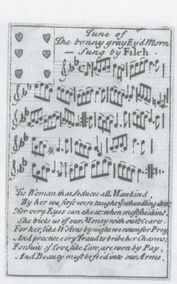 Tune of
The bonny gray Ey'd Morn
Sung by Filch.
'Tis Woman that seduces all Mankind,
By her we first were taught the wheedling Arts:
Her very Eyes can cheat; when most she's kind,
She tricks us of our Money with our Hearts.
For her, like Wolves by night we roam for Prey,
And practice ev'ry Fraud to bribe her Charms:
For Suits of Love, like Law, are won by Pay,
And Beauty must be fee'd into our Arms.